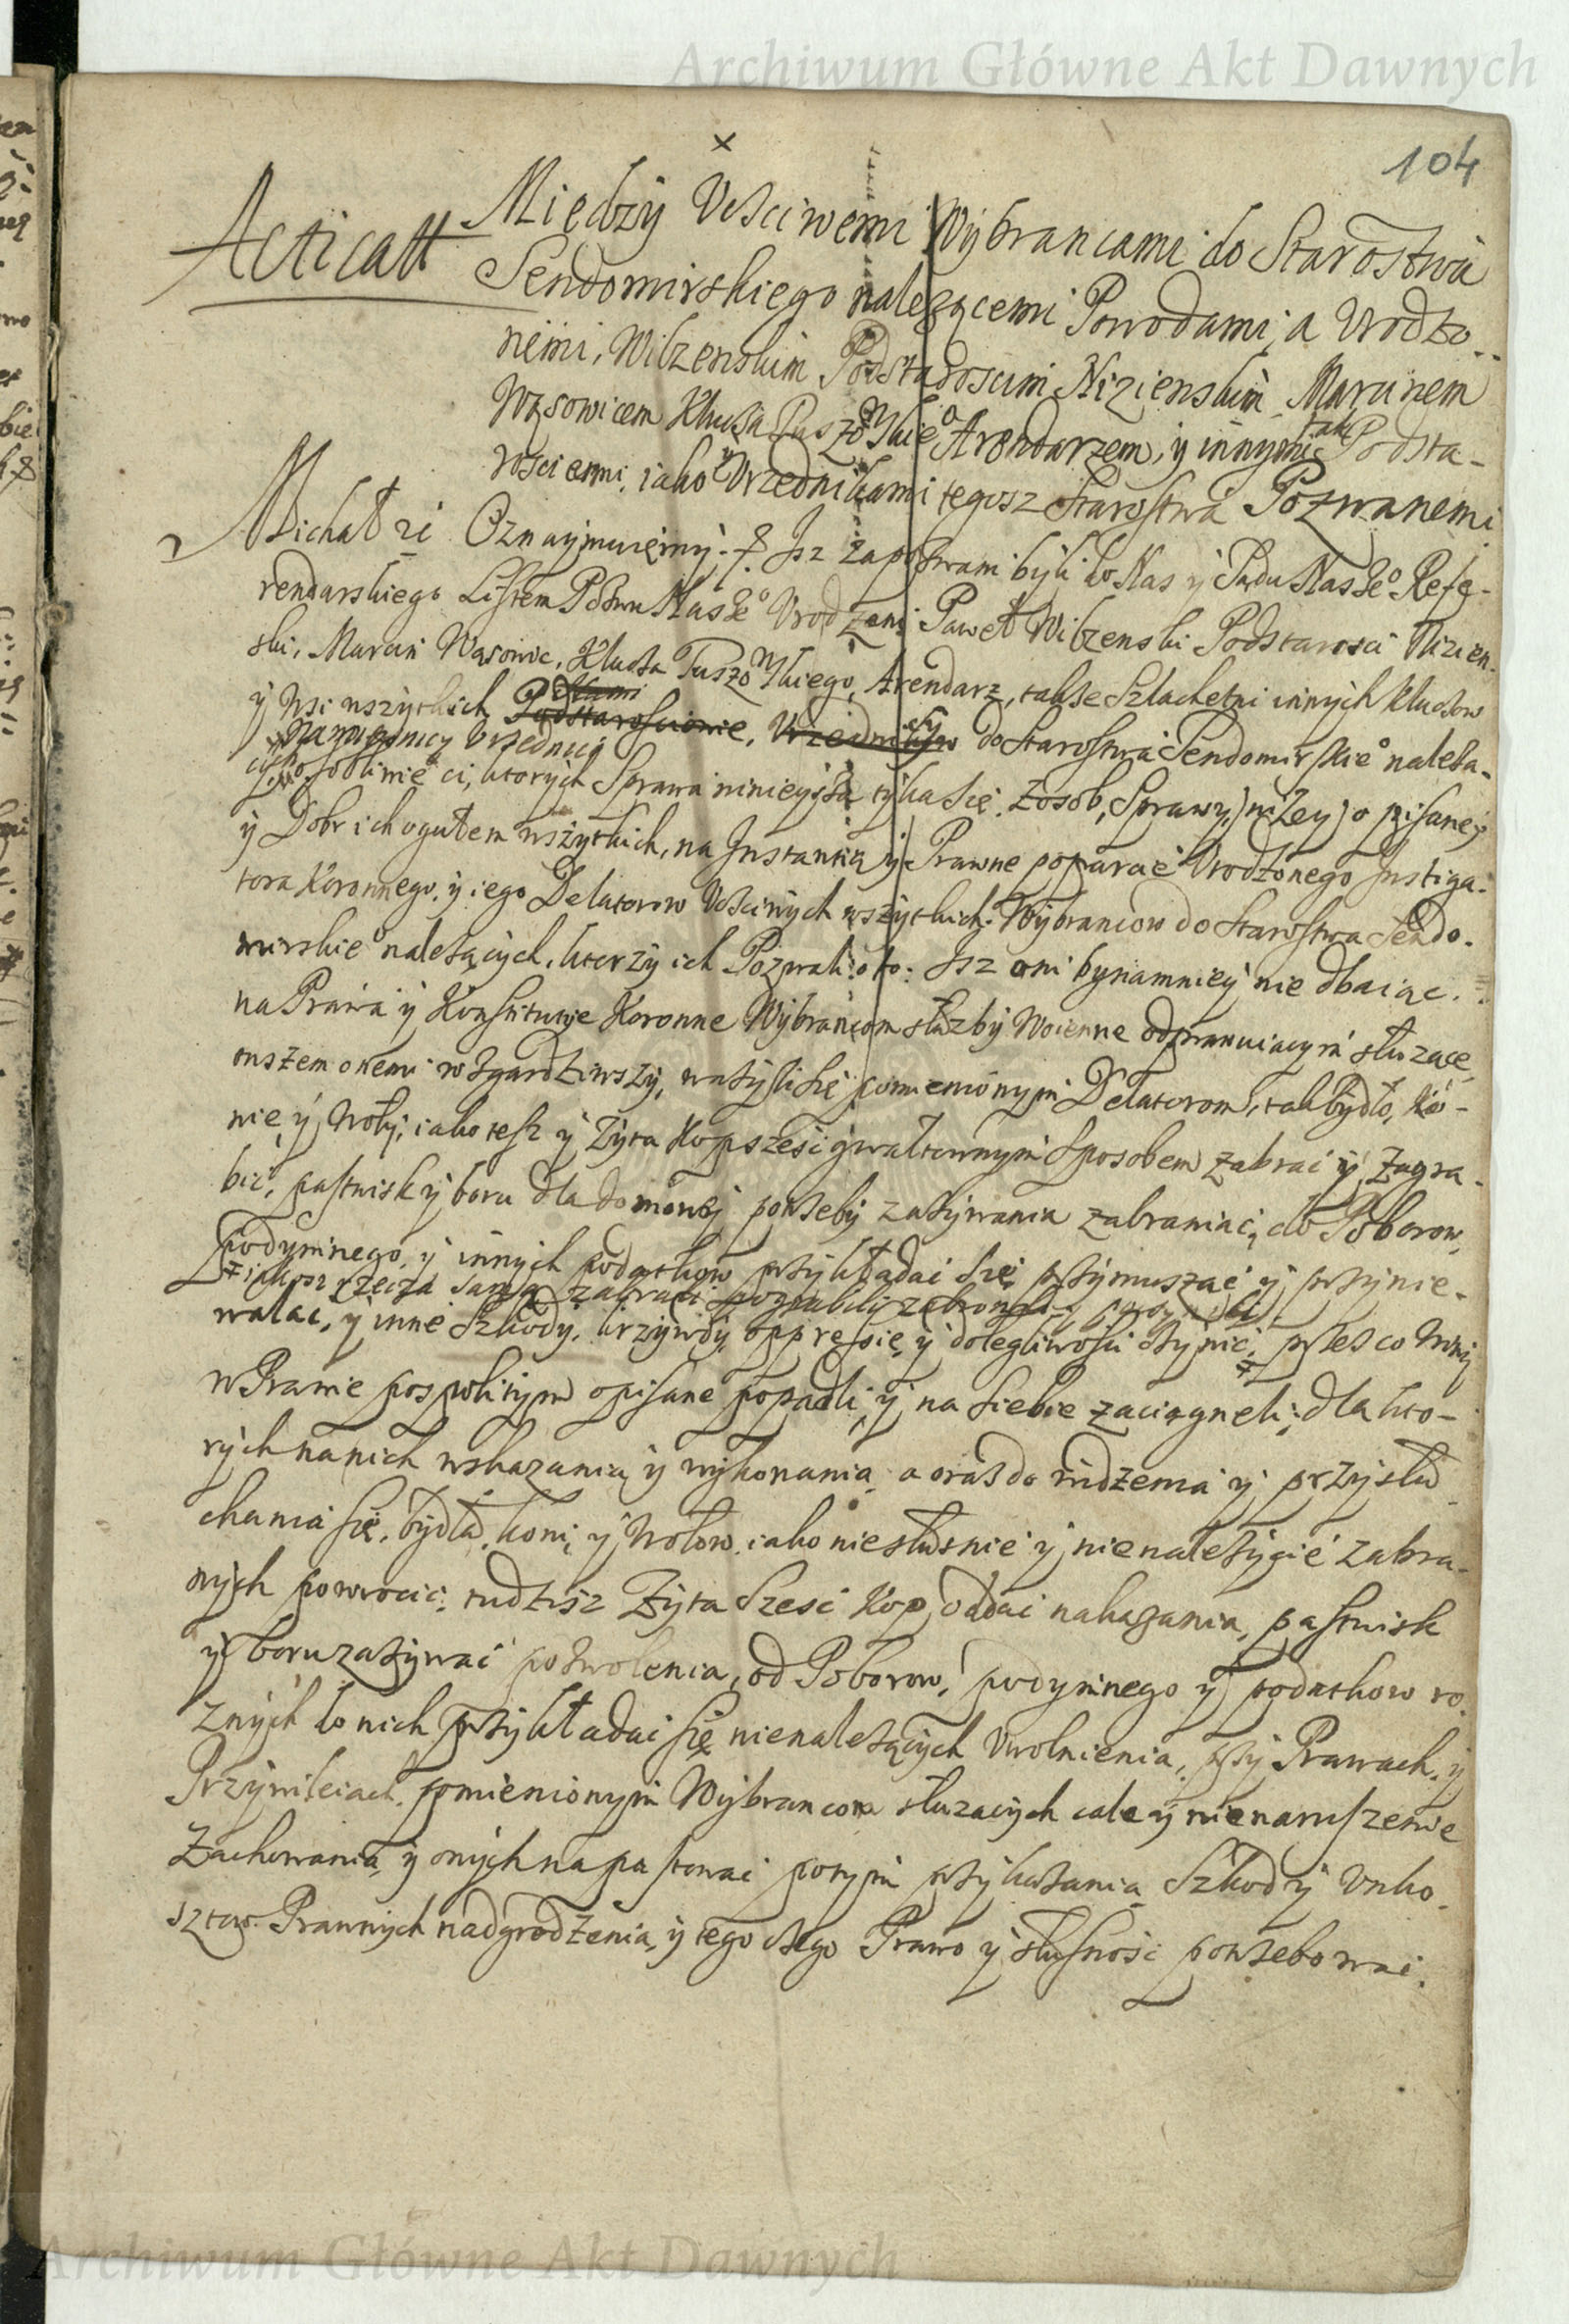 Archiwum Główne Akt Dawnych
104
x
Acticatt
Między Ucsciwemi Wybrancami do Starostwa
Sendomirskiego należącemi Powodami, a Urodzo
nemi, Wilzenskim Podstarościm Nizienskim Marcinem
Wąsowicem Klucza Tuszowskieo Arendarzem, y innymi tak Podsta-
rosciemi, iako y Urzednikami tegosz Starostwa Pozwanemi
Michał etc Oznaymuięmy. etc. Jsz zapozwani byli do Nas y Sądu Naszeo Refe-
rendarskiego Listem Pozwu Naszeo Urodzeni Paweł Wilzenski Podstarosci Nizien-
ski, Marcin Wąsowic, Klucza Tuszowskiego, Arendarz, takze Szlachetni innych kluczow
y Wsi wszytkich Podstaroscionie, Urzednikow do Starostwa Sendomirskieo należa-
Urzednicy
osobliwie ci, ktorych Sprawa ninieyszа tyka się. z osob, Sprawy nizey opisaney
y Dobr ich ogułem wszytkich, na Jnstantią y Prawne poparcie Urodzonego Jnstiga-
tora Koronnego, y iego Delatorow Ucsciwych wszytkich Wybrancow do Starostwa Sendo-
mirskieo należących, ktorzy ich Pozwali o to: Jsz oni bynamniey nie dbaiąc
na Prawa y Konstitucye Koronne Wybrancom służby Woienne odprawuiącym służące
owszem onemi wzgardziwszy, ważyli się pomienionym Delatorom, tak bydło, Ko-
nie, y Woły, iako tesz y Żyta Kop sześć gwałtownym sposobem zabrać y zagra-
bić, pastwisk y boru dla domowey potrzeby zażywania zabraniać, do Poborow,
podymnego, y innych podatkow przykładać się przymuszać y przynie-
rzeczą samą
walać, y inne szkody, krzywdy, oppressie, y dolegliwosci czynić, przes co Winy
w Prawie pospolitym opisane popadli, y na siebie zaciągneli; dla kto-
rych na nich wskazania y wykonania, a oraz do widzenia y przysłu
chania się, bydła, koni, y Wołow, iako niesłusznie y nienależycie zabra-
nych powrocić, tudziesz Żyta szesc Kop, oddać nakazania, pastwisk
y boru zażywać pozwolenia, od Poborow, podymnego y podatkow ro
znych do nich przykładać się nienależących Uwolnienia, przy Prawach, y
Przywileiach, pomienionym Wybrancom służących cale y nienaruszenie
Zachowania, y onych napastować potym przykazania, Szkod y Unko-
sztow Prawnych nadgrodzenia, y tego czego Prawo y słusnosc potrzebować.
Archiwum Główne Akt Dawnych